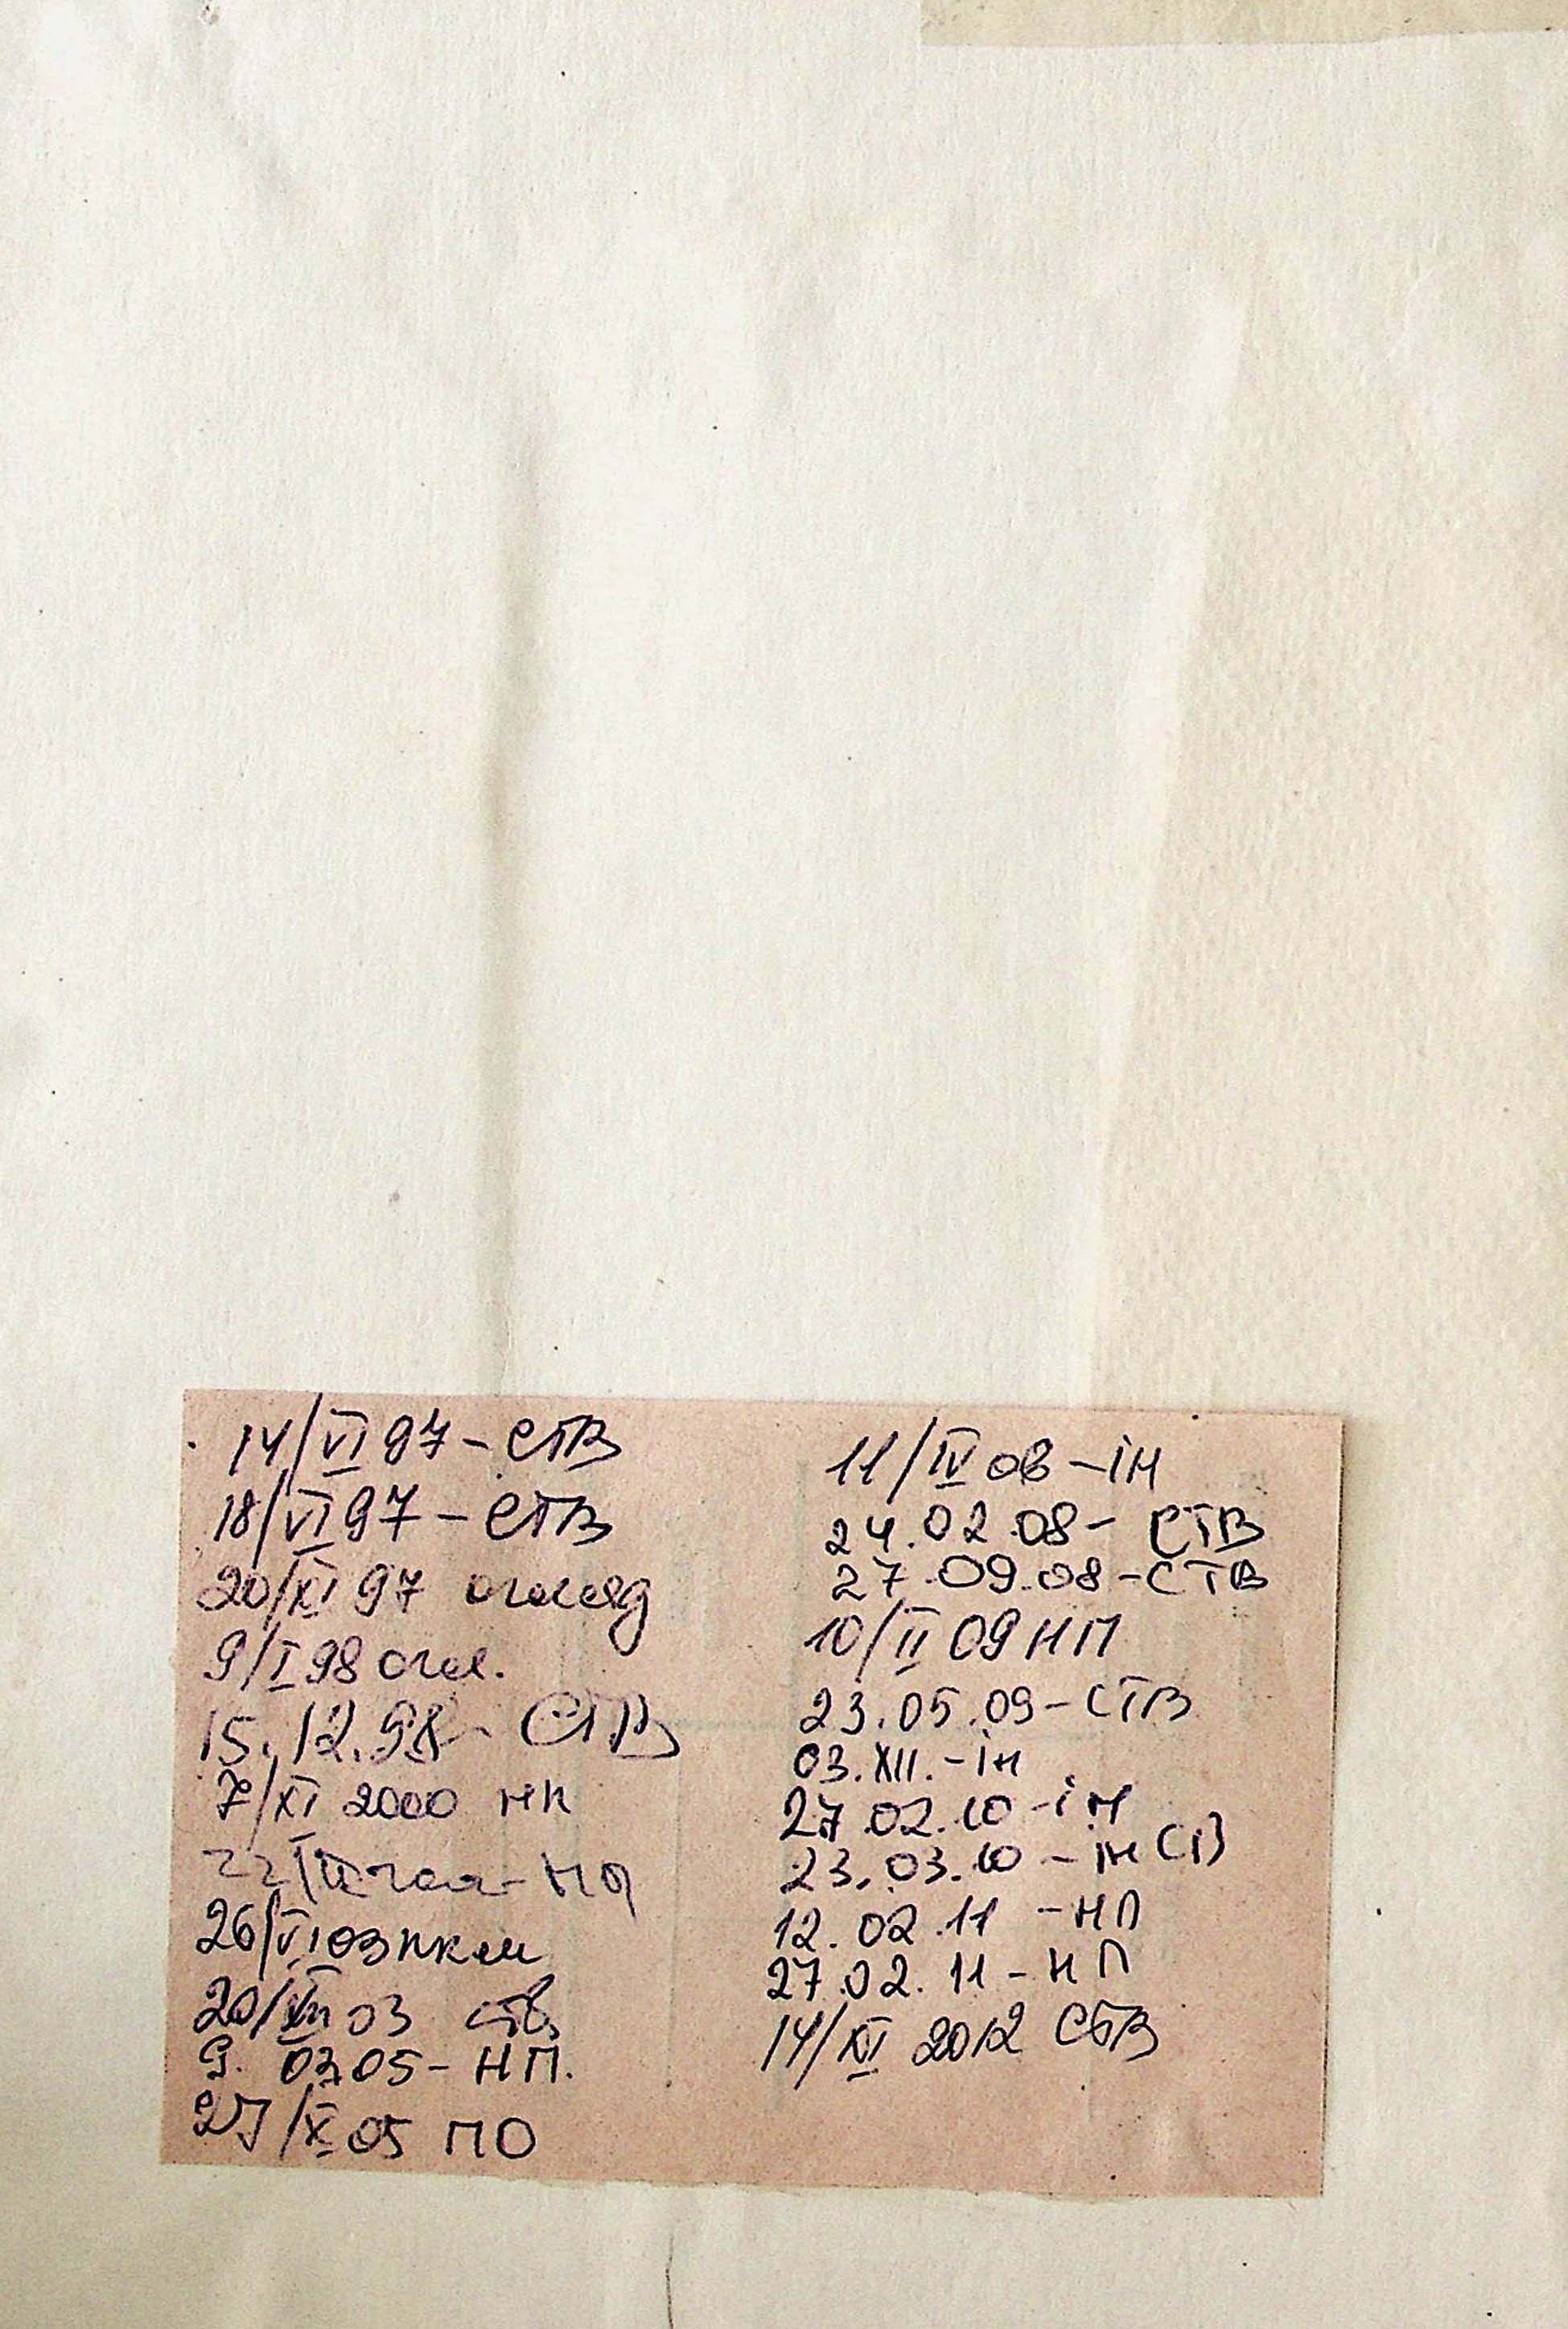 14/VI 97 - СТВ
18/VI 97 - СТВ
20/XI 97 огляд
9/I 98 огл.
15.12.98 - СТВ
7/XI 2000 НП
26/VI 03
20/ 03 ств
9. 03 05 - НП.
27/X 05 ПО
11/IV 06 - ін
24.02.08 - СТВ
27.09.08 - СТВ
10/II 09 НП
23.05.09 - СТВ
03.XII. - ін
27.02.10 - ін
23.03.10 - ін
12.02.11 - НП
27.02.11 - НП
14/XI 2012 СТВ